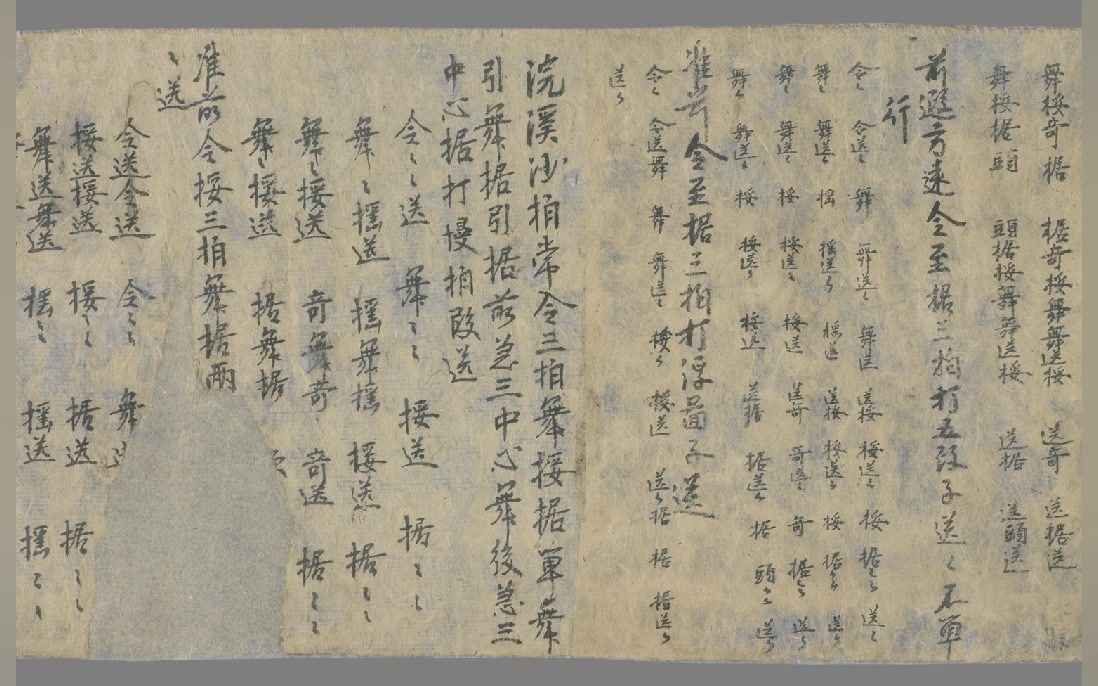 舞挼奇据 据奇挼舞舞送挼 送奇 送据送
舞挼据頭 頭据挼舞舞送挼 送据 送頭送
前遐方遠令至据三拍打五段子送〻不單
行
令〻 令送〻 舞 舞送〻 舞送 送挼 挼送〻 挼 据〻 送〻
舞〻 舞送〻 摇 摇送〻 摇送 送挼 挼送〻 挼 据〻 送〻
舞〻 舞送〻 挼 挼送〻 挼送 送奇 奇送〻 奇 据〻 送〻
舞〻 舞送〻 挼 挼送〻 挼送 送据 据送〻 据 頭〻 送〻
准前令至据三拍打浮圖子送
令〻 令送舞 舞 舞送〻 挼〻 挼送 送〻据 据 据送〻
送〻
浣溪沙拍常令三拍舞挼据單舞
引舞据引据前急三中心舞後急三
中心据打慢拍段送
令〻〻送 舞〻〻 挼送 据〻〻
舞〻摇送 摇舞摇 挼送 据〻〻
舞〻挼送 奇舞奇 奇送 据〻〻
舞〻挼送 据舞据
准前令挼三拍舞据兩
〻送
令送令送 令〻〻 舞
挼送挼送 挼〻〻 据送 据〻〻
舞送舞送 摇〻〻 摇送 摇〻〻